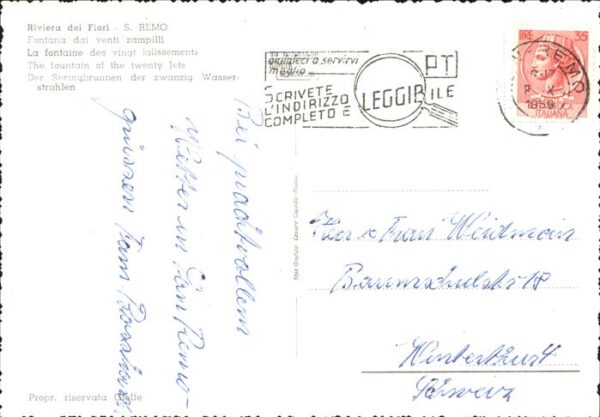 Riviera dei Fiori - S. REMO
Fontana dai venti zampilli
La fontaine des vingt jalissements
The fountain of the twenty Jets
Der Springbrunnen der zwanzig Wasser-
strahlen
aiutateci a servirvi
meglio
SCRIVETE
L'INDIRIZZO
COMPLETO E LEGGIBILE
PT
LIRE 35
REMO
1959
ITALIANA
Bei prachtvollem
Wetter in San Remo
grüssen Fam.
Herr & Frau Weidmann
Baumschulstr
Winterthur
Schweiz
Propr. riservata